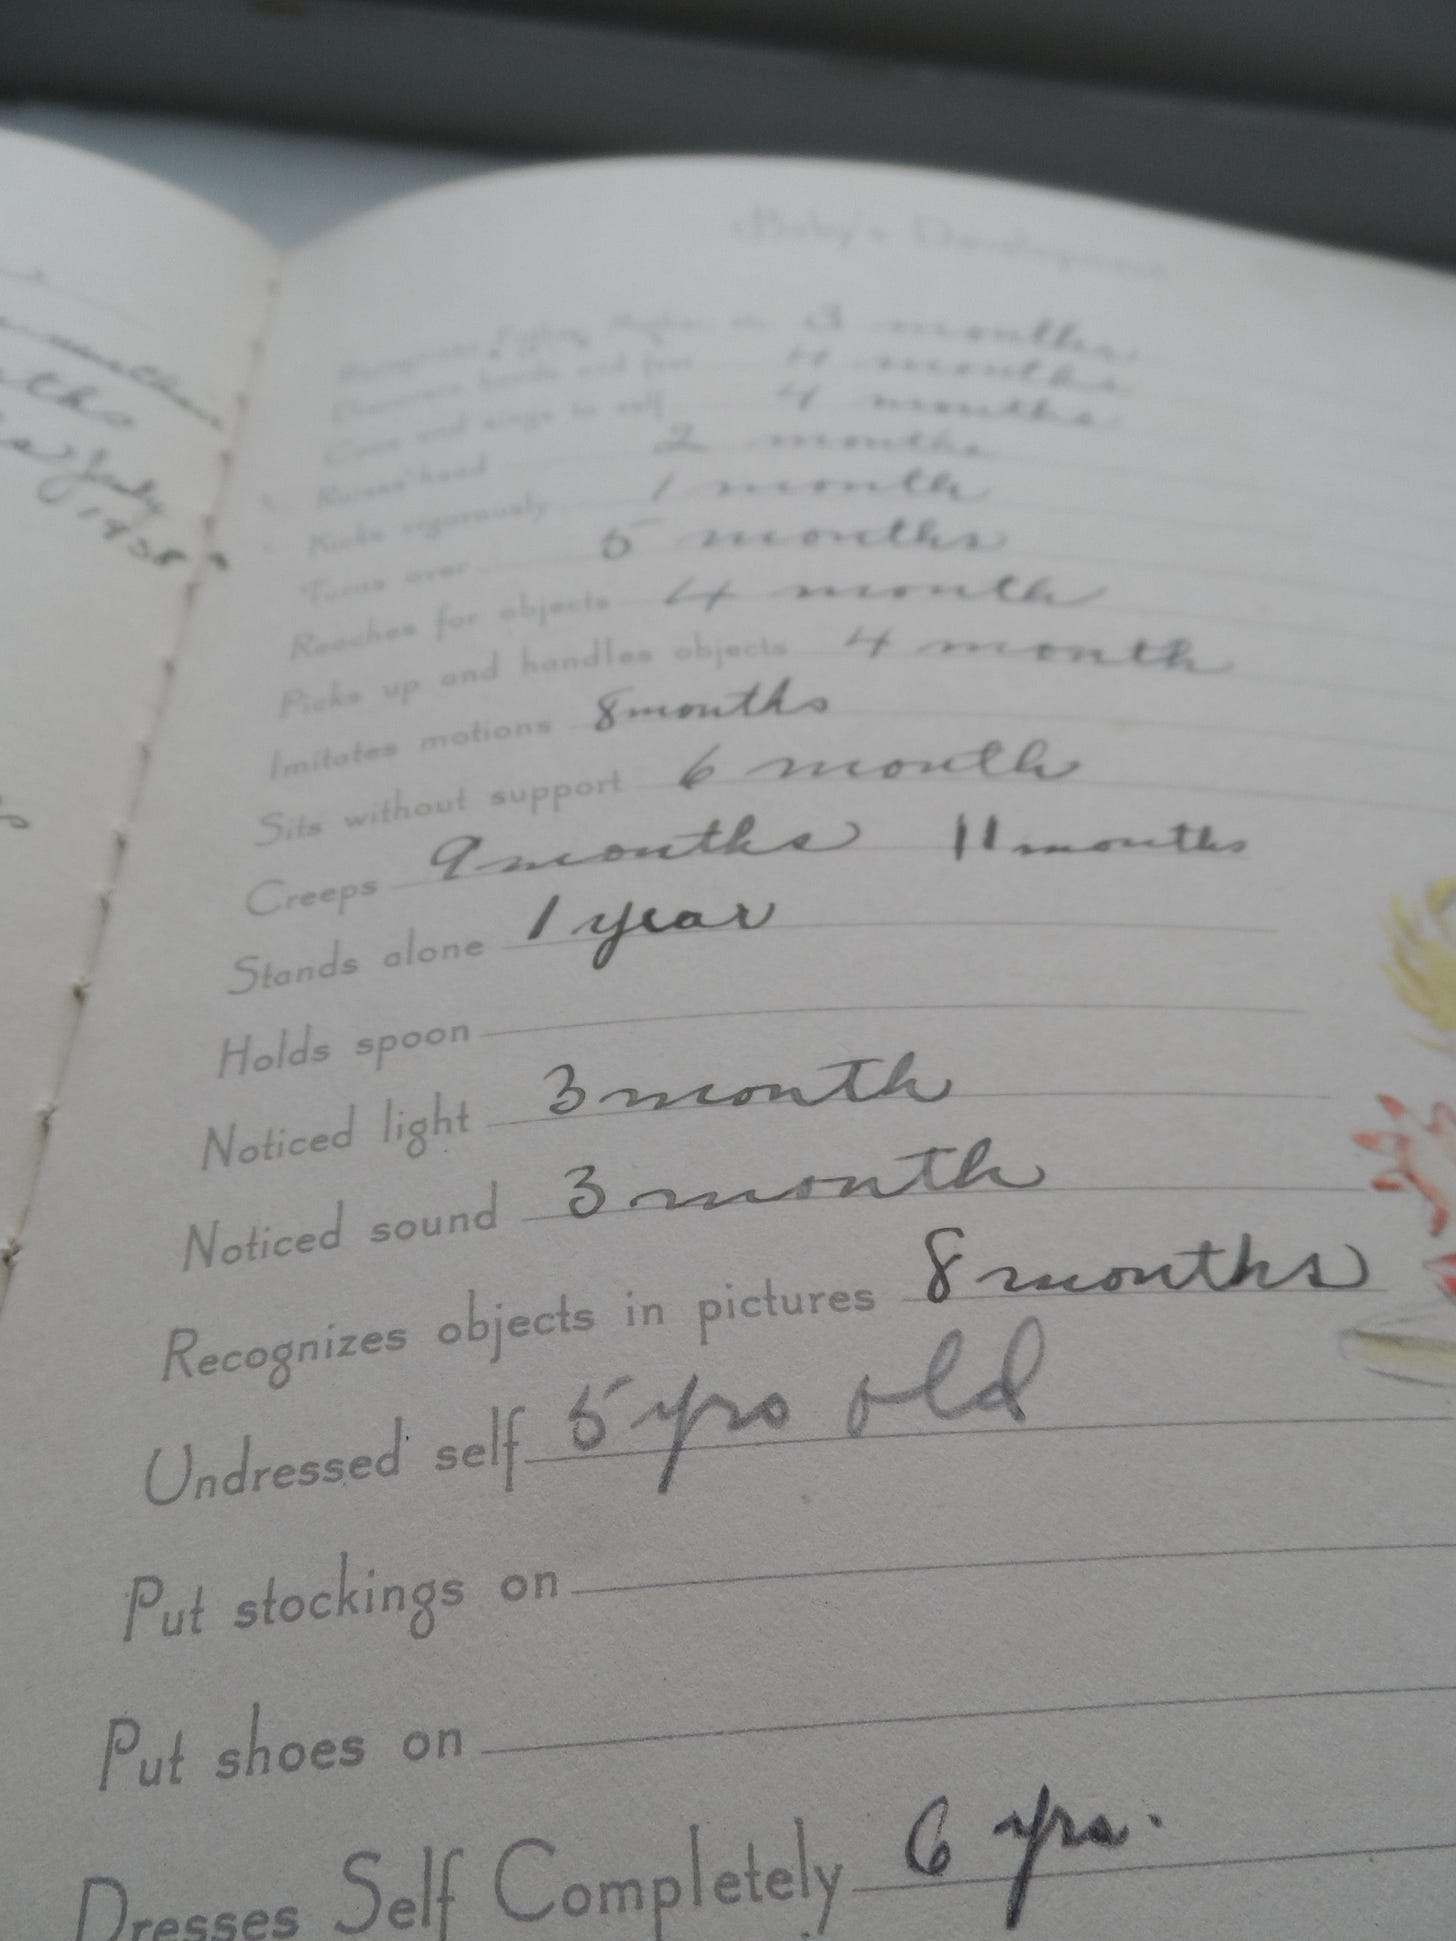 July
1938
Baby's Development
Recognizes Father, Mother, etc. 3 months
Discovers hands and feet 4 months
Coos and sings to self 4 months
Raises head 2 months
Kicks vigorously 1 month
Turns over 5 months
Reaches for objects 4 month
Picks up and handles objects 4 month
Imitates motions 8 months
Sits without support 6 month
Creeps 9 months 11 months
Stands alone 1 year
Holds spoon
Noticed light 3 month
Noticed sound 3 month
Recognizes objects in pictures 8 months
Undressed self 5 yrs old
Put stockings on
Put shoes on
Dresses Self Completely 6 yrs.